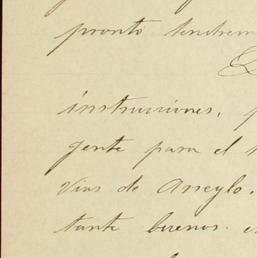 pronto tendrem
instrucciones, p
gente para el
Vias de Arreglo.
tante buenos. e